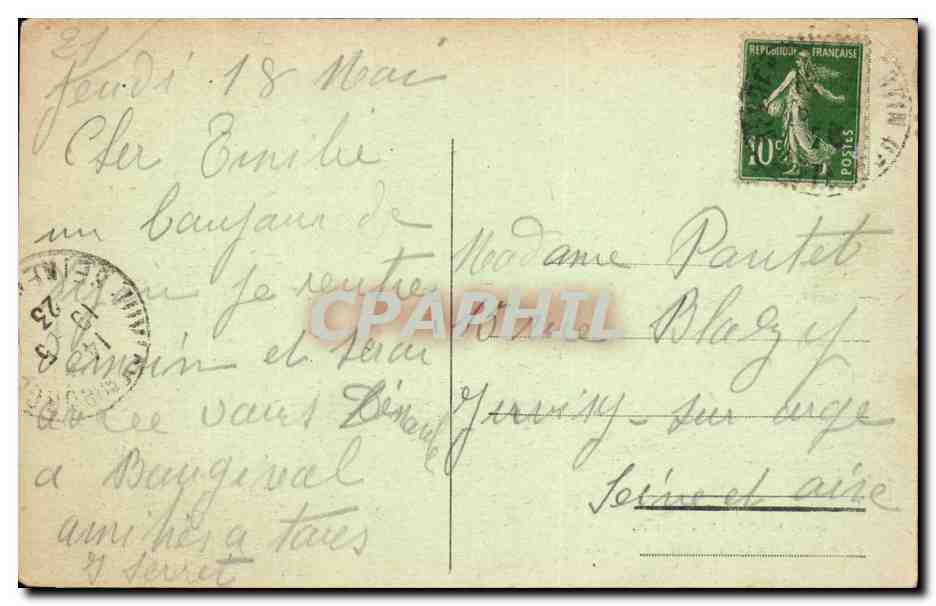 21
Jeudi 18 Mai
Cher Emilie
un banjaur de
je rentre
demain et serai
avec vous Dimanche
a Baugival
amities a taus
J Serret
REPUBLIQUE FRANÇAISE
10c
POSTES
Madame Pautet
rue Blazy
Jurvisy-sur arge
Seine et aise
CPARHIL